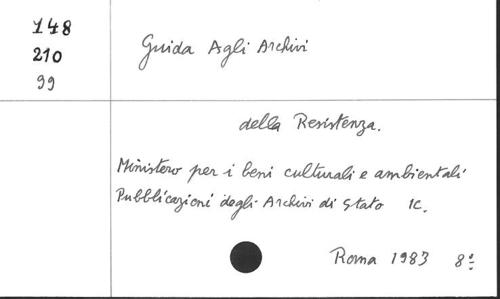 148
210
99
Guida Agli Archivi
della Resistenza.
Ministero per i beni culturali e ambientali
Pubblicazioni degli Archivi di Stato IC.
Roma 1983 8º